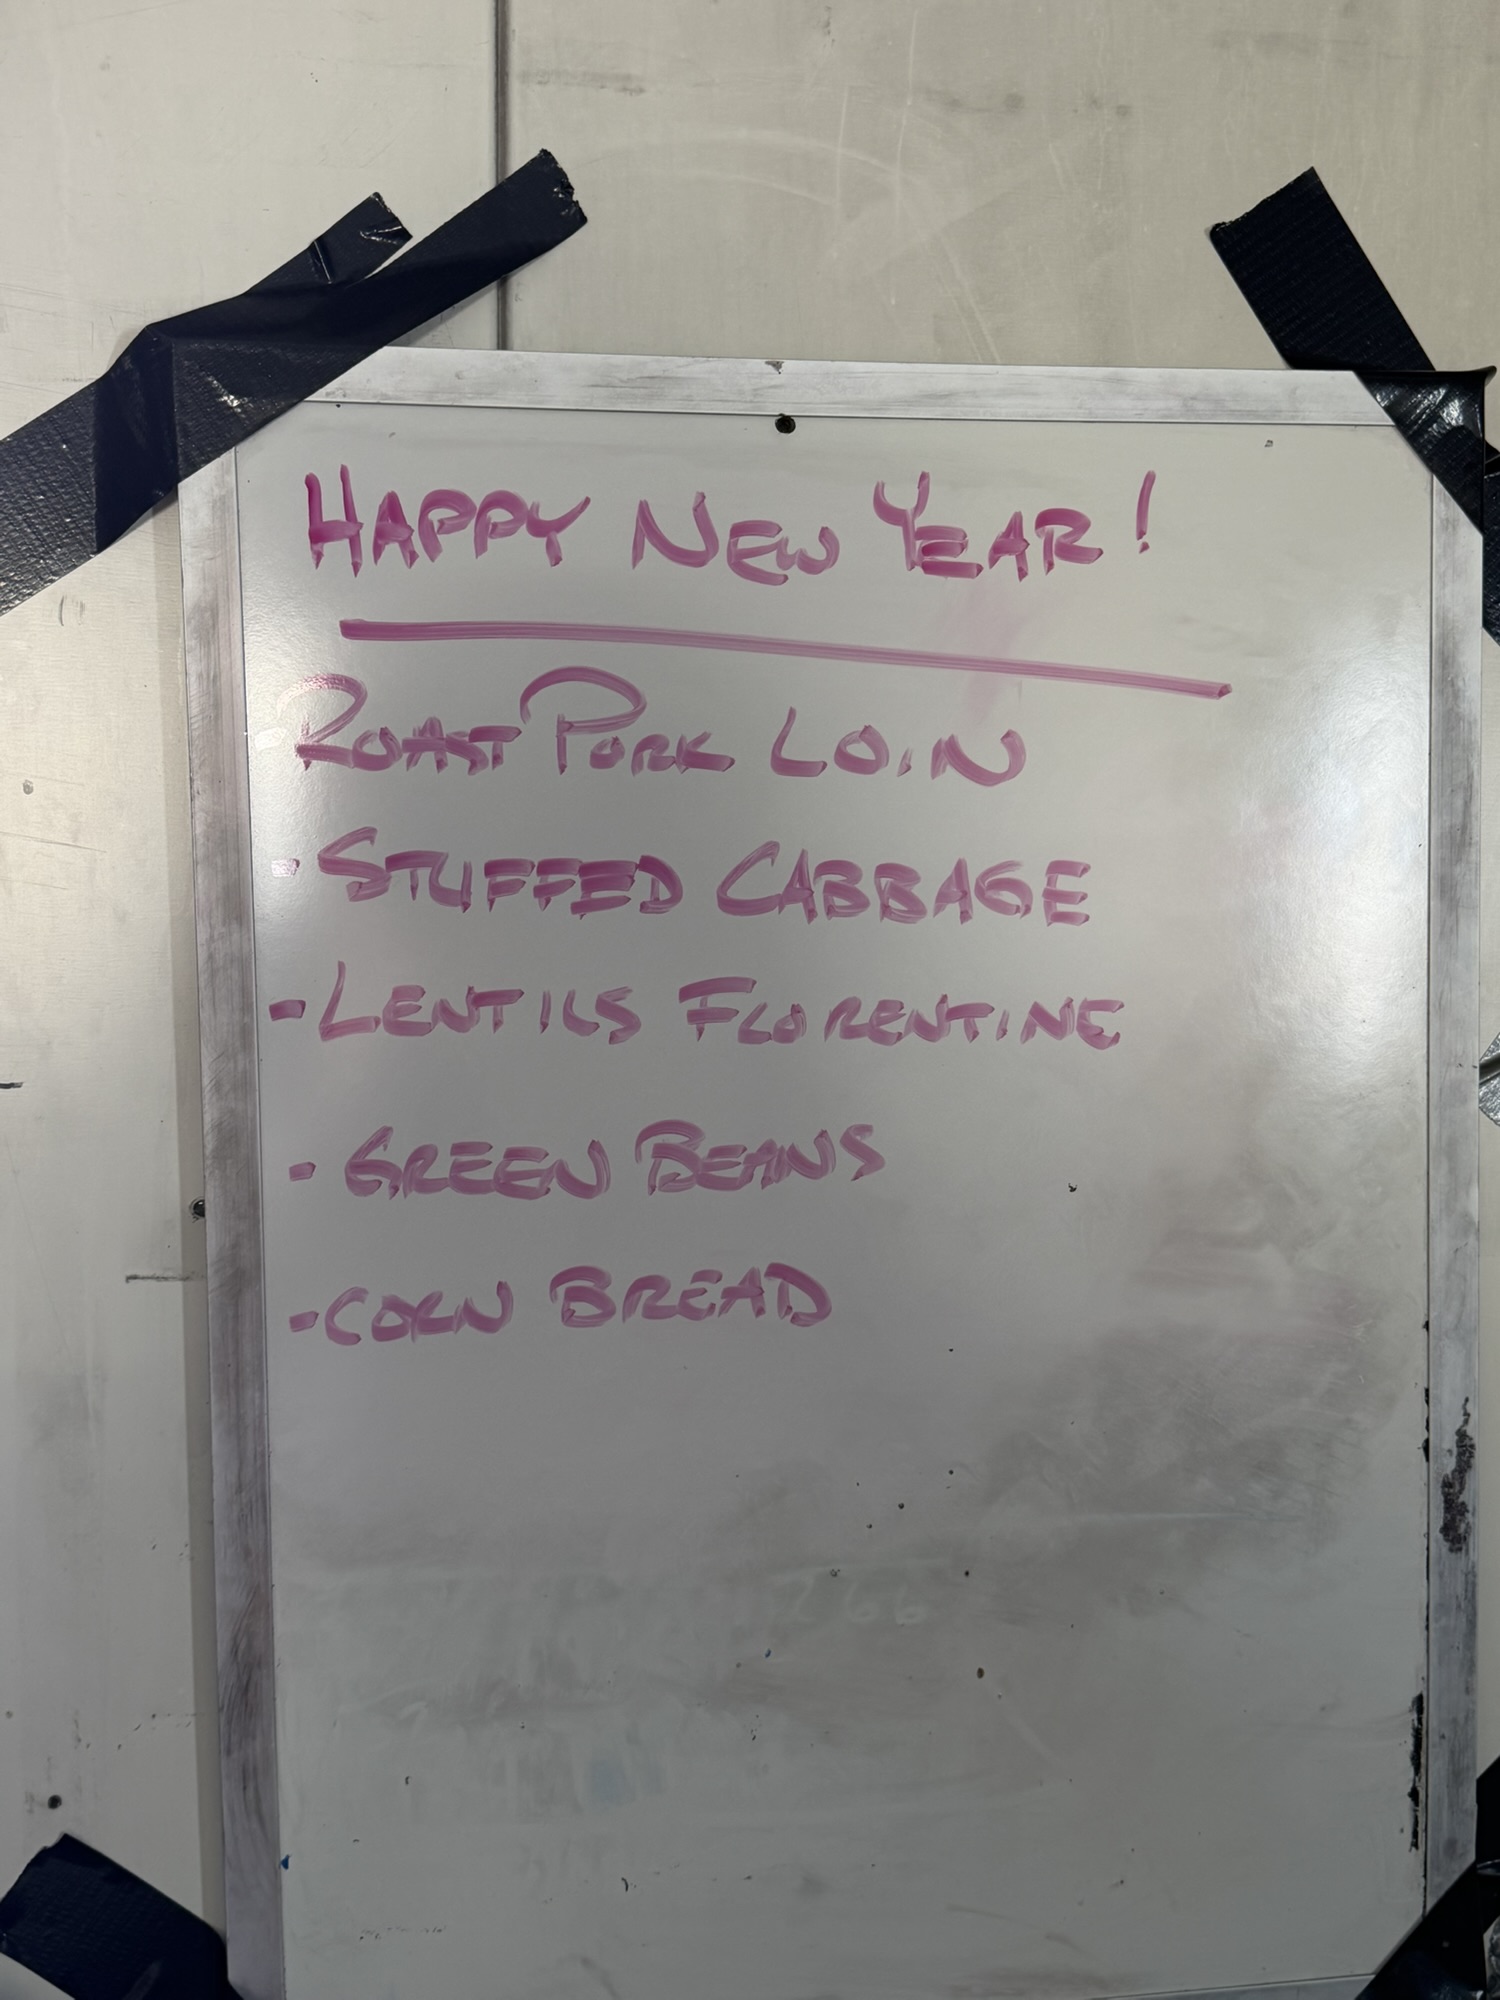 HAPPY NEW YEAR!
ROAST PORK LOIN
- STUFFED CABBAGE
- LENTILS FLORENTINE
- GREEN BEANS
- CORN BREAD